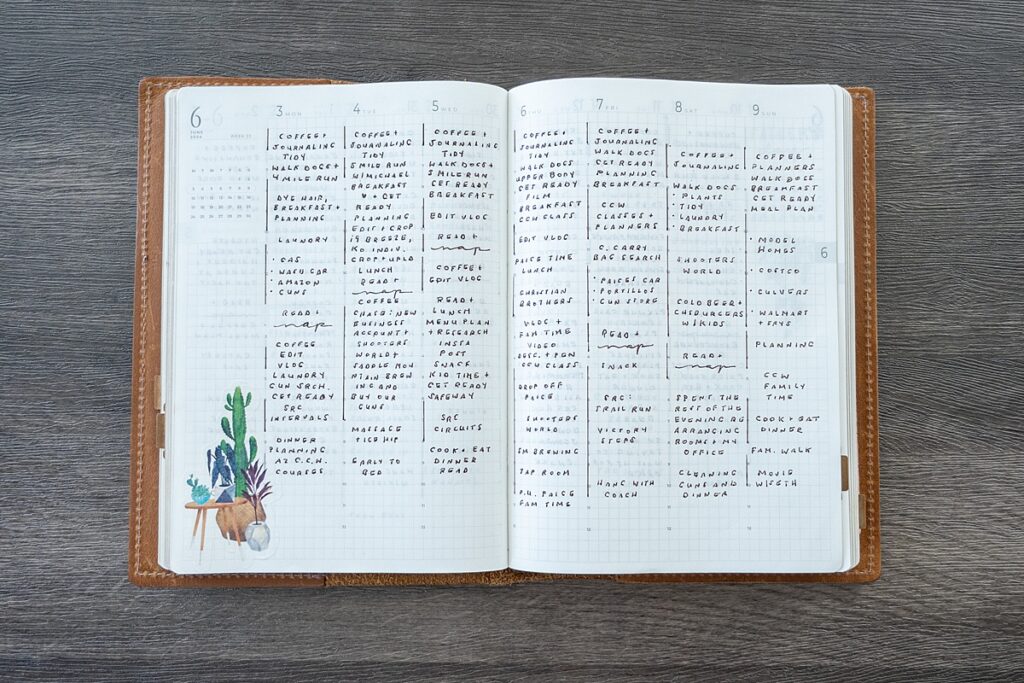 6
JUNE
3 MON
COFFEE +
JOURNALING
TIDY
WALK DOGS +
4 MILE RUN
DYE HAIR,
BREAKFAST +
PLANNING
LAUNDRY
· GAS
· WASH CAR
· AMAZON
· GUNS
READ +
nap
COFFEE
EDIT
VLOG
LAUNDRY
GUN SRCH.
GET READY
SRC
INTERVALS
DINNER
PLANNING
AZ C.C.W.
COURSES
4 TUE
COFFEE +
JOURNALING
TIDY
5 MILE RUN
W/MICHAEL
BREAKFAST
+ GET
READY
PLANNING
EDIT + CROP
CROP + UPLD
LUNCH
READ +
nap
COFFEE
CHASE: NEW
BUSINESS
ACCOUNT +
SHOOTERS
WORLD +
SADDLE MOU
NTAIN BREW
ING AND
BUY OUR
GUNS
MASSAGE
+ ICE HIP
EARLY TO
BED
5 WED
COFFEE +
JOURNALING
TIDY
WALK DOGS +
5 MILE RUN
GET READY
BREAKFAST
EDIT VLOG
READ +
nap
COFFEE +
EDIT VLOG
READ +
LUNCH
MENU PLAN
+ RESEARCH
INSTA
POST
SNACK
KID TIME +
GET READY
SAFEWAY
SRC
CIRCUITS
COOK + EAT
DINNER
READ
6 THU
COFFEE +
JOURNALING
TIDY
WALK DOGS
UPPER BODY
GET READY
FILM
BREAKFAST
CCW CLASS
EDIT VLOG
PAIGE TIME
LUNCH
CHRISTIAN
BROTHERS
VLOG +
FAM TIME
VIDEO
DESC. + PGN
CCW CLASS
DROP OFF
PAIGE
SHOOTERS
WORLD
SM BREWING
TAP ROOM
P.U. PAIGE
FAM TIME
7 FRI
COFFEE +
JOURNALING
WALK DOGS
GET READY
PLANNING
BREAKFAST
CCW
CLASSES +
PLANNERS
C. CARRY
BAG SEARCH
· PAIGE'S CAR
· PORTILLOS
· GUN STORE
READ +
nap
SNACK
SRC:
TRAIL RUN
VICTORY
STEPS
HANG WITH
COACH
8 SAT
COFFEE +
JOURNALING
WALK DOGS
· PLANTS
· TIDY
· LAUNDRY
· BREAKFAST
SHOOTERS
WORLD
COLD BEER +
CHSBURGERS
W/KIDS
READ +
nap
SPENT THE
REST OF THE
EVENING RE
ARRANGING
ROOMS + MY
OFFICE
CLEANING
GUNS AND
DINNER
9 SUN
COFFEE +
PLANNERS
WALK DOGS
BREAKFAST
GET READY
MEAL PLAN
· MODEL
HOMES
· COSTCO
· CULVERS
· WALMART
+ FRYS
PLANNING
CCW
FAMILY
TIME
COOK + EAT
DINNER
FAM. WALK
MOVIE
6